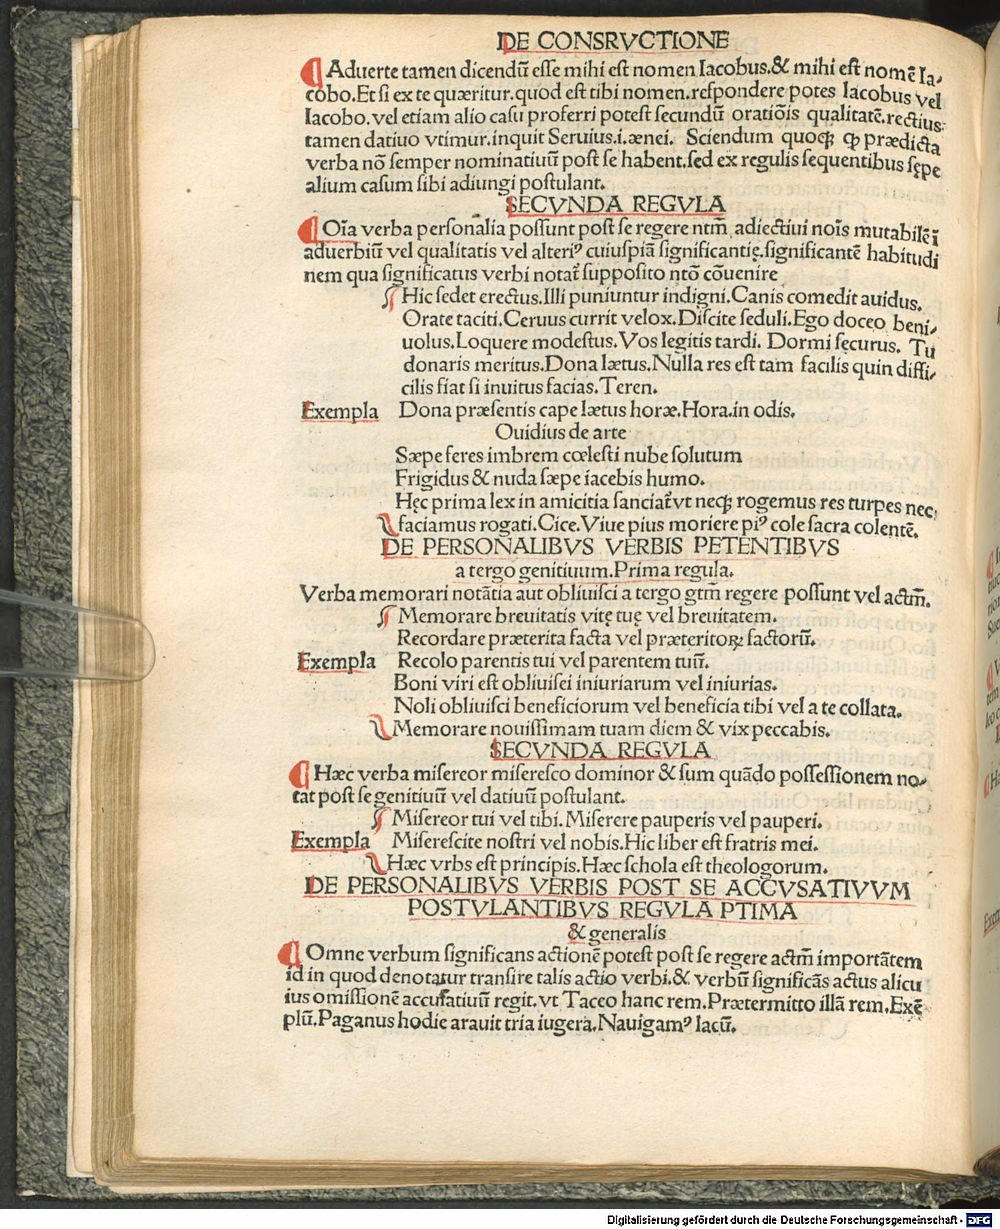 DE CONSRVCTIONE
¶ Aduerte tamen dicendū esse mihi est nomen Iacobus.& mihi est nomē Ia-
cobo.Et si ex te quæritur.quod est tibi nomen.respondere potes Iacobus vel
Iacobo.vel etiam alio casu proferri potest secundū oratiōis qualitatē.rectius
tamen datiuo vtimur.inquit Seruius.i.ænei. Sciendum quoqꝫ ꝙ prædicta
verba nō semper nominatiuū post se habent.sed ex regulis sequentibus sępe
alium casum sibi adiungi postulant.
SECVNDA REGVLA
¶ Oīa verba personalia possunt post se regere ntm̄ adiectiui nois mutabilē ī
aduerbiū vel qualitatis vel alteriꝰ cuiuspiā significantię.significantē habitudi
nem qua significatus verbi notat᷑ supposito ntō cōuenire
Hic sedet erectus.Illi puniuntur indigni.Canis comedit auidus.
Orate taciti.Ceruus currit velox.Discite seduli.Ego doceo beni-
uolus.Loquere modestus.Vos legitis tardi. Dormi securus. Tu
donaris meritus.Dona lætus.Nulla res est tam facilis quin diffi-
cilis fiat si inuitus facias.Teren.
Exempla Dona præsentis cape lætus horæ.Hora.in odis.
Ouidius de arte
Sæpe feres imbrem cœlesti nube solutum
Frigidus & nuda sæpe iacebis humo.
Hęc prima lex in amicitia sanciat᷑ vt neqꝫ rogemus res turpes nec
faciamus rogati.Cice.Viue pius moriere piꝰ cole sacra colentē.
DE PERSONALIBVS VERBIS PETENTIBVS
a tergo genitiuum.Prima regula.
Verba memorari notātia aut obliuisci a tergo gtm̄ regere possunt vel actm̄.
Memorare breuitatis vitę tuę vel breuitatem.
Recordare præterita facta vel præteritorꝫ factorū.
Exempla Recolo parentis tui vel parentem tuū.
Boni viri est obliuisci iniuriarum vel iniurias.
Noli obliuisci beneficiorum vel beneficia tibi vel a te collata.
Memorare nouissimam tuam diem & vix peccabis.
SECVNDA REGVLA
¶ Hæc verba misereor miseresco dominor & sum quādo possessionem no-
tāt post se genitiuū vel datiuū postulant.
Misereor tui vel tibi.Miserere pauperis vel pauperi.
Exempla Miserescite nostri vel nobis.Hic liber est fratris mei.
Hæc vrbs est principis.Hæc schola est theologorum.
DE PERSONALIBVS VERBIS POST SE ACCVSATIVVM
POSTVLANTIBVS REGVLA PTIMA
& generalis
¶ Omne verbum significans actionē potest post se regere actm̄ importātem
id in quod denotatur transire talis actio verbi.& verbū significās actus alicu
ius omissionē accusatiuū regit.vt Taceo hanc rem.Prætermitto illā rem.Exē
plū.Paganus hodie arauit tria iugera.Nauigamꝰ lacū.
Digitalisierung gefördert durch die Deutsche Forschungsgemeinschaft - DFG